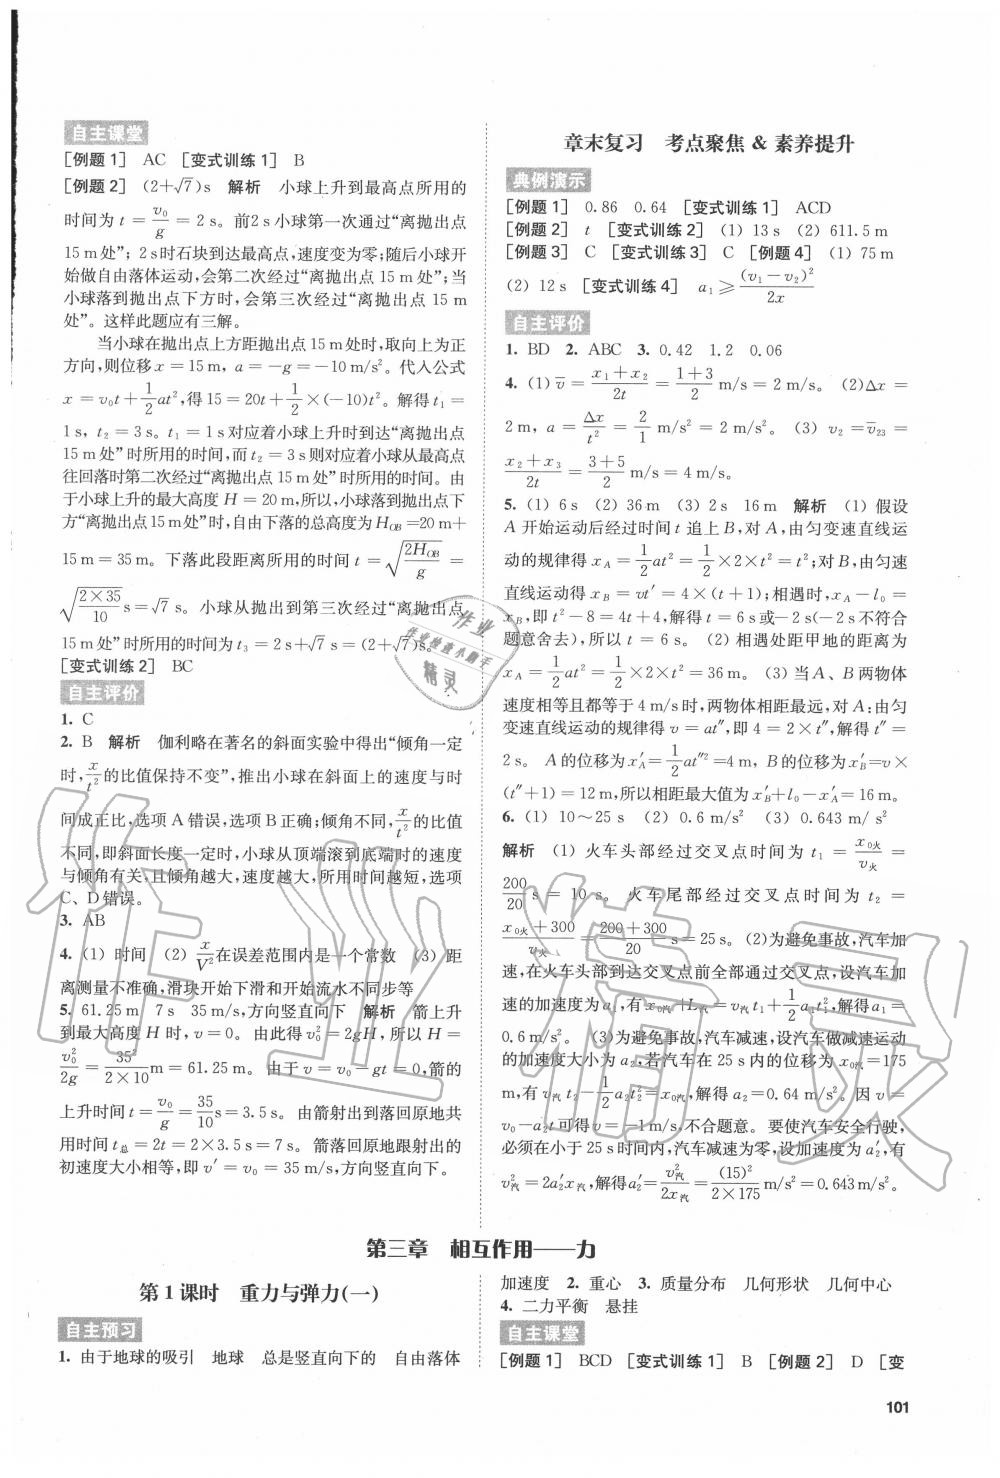 自主课堂
[例题1] AC [变式训练1] B
[例题2] (2+√7)s 解析 小球上升到最高点所用的
时间为 t = v₀/g = 2 s。前2 s小球第一次通过“离抛出点
15 m处”;2 s时石块到达最高点,速度变为零;随后小球开
始做自由落体运动,会第二次经过“离抛出点 15 m 处”;当
小球落到抛出点下方时,会第三次经过“离抛出点 15 m
处”。这样此题应有三解。
当小球在抛出点上方距抛出点15 m处时,取向上为正
方向,则位移 x = 15 m, a = -g = -10 m/s²。代入公式
x = v₀t + 1/2 at²,得 15 = 20t + 1/2 × (-10)t²。解得 t₁ =
1 s, t₂ = 3 s。t₁ = 1 s对应着小球上升时到达“离抛出点
15 m处”时所用的时间,而 t₂ = 3 s则对应着小球从最高点
往回落时第二次经过“离抛出点 15 m 处”时所用的时间。由
于小球上升的最大高度 H = 20 m,所以,小球落到抛出点下
方“离抛出点15 m处”时,自由下落的总高度为 H_OB = 20 m +
15 m = 35 m。下落此段距离所用的时间 t = √(2H_OB/g) =
√(2×35/10) s = √7 s。小球从抛出到第三次经过“离抛出点
15 m处”时所用的时间为 t₃ = 2 s + √7 s = (2+√7)s。
[变式训练2] BC
自主评价
1. C
2. B 解析 伽利略在著名的斜面实验中得出“倾角一定
时,x/t²的比值保持不变”,推出小球在斜面上的速度与时
间成正比,选项A错误,选项B正确;倾角不同,x/t²的比值
不同,即斜面长度一定时,小球从顶端滚到底端时的速度
与倾角有关,且倾角越大,速度越大,所用时间越短,选项
C、D错误。
3. AB
4. (1) 时间 (2) x/V² 在误差范围内是一个常数 (3) 距
离测量不准确,滑块开始下滑和开始流水不同步等
5. 61.25 m 7 s 35 m/s,方向竖直向下 解析 箭上升
到最大高度 H 时, v = 0。由此得 v₀² = 2gH,所以 H =
v₀²/2g = 35²/(2×10) m = 61.25 m。由于 v = v₀ - gt = 0,箭的
上升时间 t = v₀/g = 35/10 s = 3.5 s。由箭射出到落回原地共
用时间 t总 = 2t = 2×3.5 s = 7 s。箭落回原地跟射出的
初速度大小相等,即 v′ = v₀ = 35 m/s,方向竖直向下。
章末复习 考点聚焦 & 素养提升
典例演示
[例题1] 0.86 0.64 [变式训练1] ACD
[例题2] t [变式训练2] (1) 13 s (2) 611.5 m
[例题3] C [变式训练3] C [例题4] (1) 75 m
(2) 12 s [变式训练4] a₁ ≥ (v₁-v₂)²/2x
自主评价
1. BD 2. ABC 3. 0.42 1.2 0.06
4. (1) v̄ = (x₁+x₂)/2t = (1+3)/2 m/s = 2 m/s。 (2) Δx =
2 m, a = Δx/t² = 2/1 m/s² = 2 m/s²。 (3) v₂ = v̄₂₃ =
(x₂+x₃)/2t = (3+5)/2 m/s = 4 m/s。
5. (1) 6 s (2) 36 m (3) 2 s 16 m 解析 (1) 假设
A 开始运动后经过时间 t 追上 B,对 A,由匀变速直线运
动的规律得 x_A = 1/2 at² = 1/2 × 2 × t² = t²;对 B,由匀速
直线运动得 x_B = vt′ = 4×(t+1);相遇时, x_A - l₀ =
x_B,即 t² - 8 = 4t + 4,解得 t = 6 s或 -2 s(-2 s不符合
题意舍去),所以 t = 6 s。 (2) 相遇处距甲地的距离为
x_A = 1/2 at² = 1/2 × 2 × t² = 36 m。 (3) 当A、B两物体
速度相等且都等于4 m/s时,两物体相距最远,对 A:由匀
变速直线运动的规律得 v = at″,即 4 = 2×t″,解得 t″ =
2 s。 A的位移为 x′_A = 1/2 at″² = 4 m, B的位移为 x′_B = v×
(t″+1) = 12 m,所以相距最大值为 x′_B + l₀ - x′_A = 16 m。
6. (1) 10～25 s (2) 0.6 m/s² (3) 0.643 m/ s²
解析 (1) 火车头部经过交叉点时间为 t₁ = x₀火/v火 =
200/20 s = 10 s。火车尾部经过交叉点时间为 t₂ =
(x₀火+300)/v火 = (200+300)/20 s = 25 s。 (2)为避免事故,汽车加
速,在火车头部到达交叉点前全部通过交叉点,设汽车加
速的加速度为a₁,有 x₀汽 + L汽 = v汽 t₁ + 1/2 a₁t₁²,解得a₁ =
0.6 m/s²。 (3)为避免事故,汽车减速,设汽车做减速运动
的加速度大小为 a₂,若汽车在 25 s内的位移为 x₀汽=175
m,有 v汽 t₂ - 1/2 a₂t₂² = x₀汽,解得 a₂ = 0.64 m/s²。因 v =
v₀ - a₂t 可得 v = -1 m/s,不合题意。要使汽车安全行驶,
必须在小于25 s时间内,汽车减速为零,设加速度为 a₂′,有
v汽² = 2a₂′x汽,解得a₂′ = v汽²/2x汽 = (15)²/(2×175) m/s² = 0.643 m/s²。
第三章 相互作用——力
第1课时 重力与弹力(一)
自主预习
1. 由于地球的吸引 地球 总是竖直向下的 自由落体
加速度 2. 重心 3. 质量分布 几何形状 几何中心
4. 二力平衡 悬挂
自主课堂
[例题1] BCD [变式训练1] B [例题2] D [变
101
作业精灵
作业
作业检查小助手
精灵